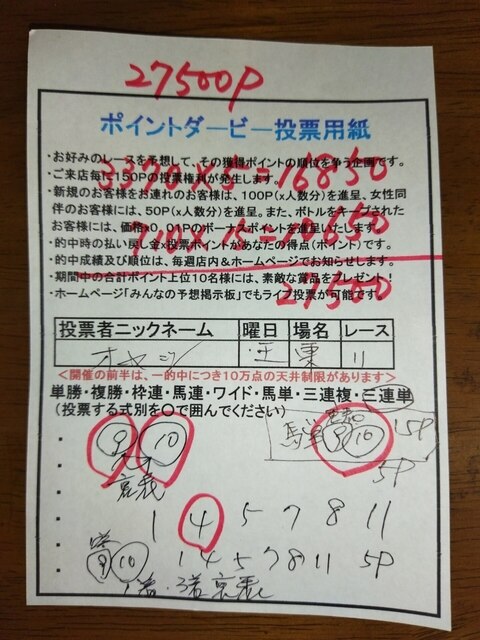 27500P
ポイントダービー投票用紙
・お好みのレースを予想して、その獲得ポイントの順位を争う企画です。
・ご来店毎に150Pの投票権利が発生します。
・新規のお客様をお連れのお客様は、100P(x人数分)を進呈、女性同
伴のお客様には、50P(x人数分)を進呈。また、ボトルをキープされた
お客様には、価格x0.01Pのボーナスポイントを進呈いたします。
・的中時の払い戻し金x投票ポイントがあなたの得点(ポイント)です。
・的中成績及び順位は、毎週店内&ホームページでお知らせします。
・期間中の合計ポイント上位10名様には、素敵な賞品をプレゼント!
・ホームページ「みんなの予想掲示板」でもライブ投票が可能です。
=16850
27500
投票者ニックネーム 曜日 場名 レース
東 11
<開催の前半は、一的中につき10万点の天井制限があります>
単勝・複勝・枠連・馬連・ワイド・馬単・三連複・三連単
(投票する式別を〇で囲んでください)
9 10 馬単 9 10 15P
裏表 5P
1 4 5 7 8 11
9 10 1 4 5 7 8 11 5P
裏表